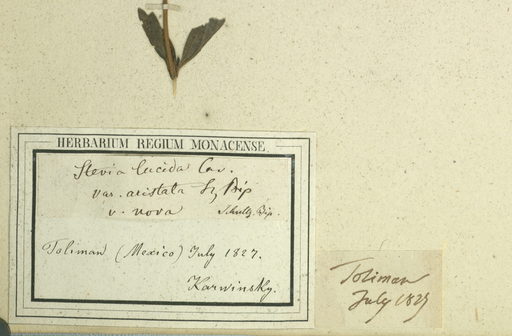 HERBARIUM REGIUM MONACENSE
Stevia lucida Cav.
var. aristata Sz Bip
v. nova Schultz. Bip.
Toliman (Mexico) July 1827.
Karwinsky.
Toliman
July 1827